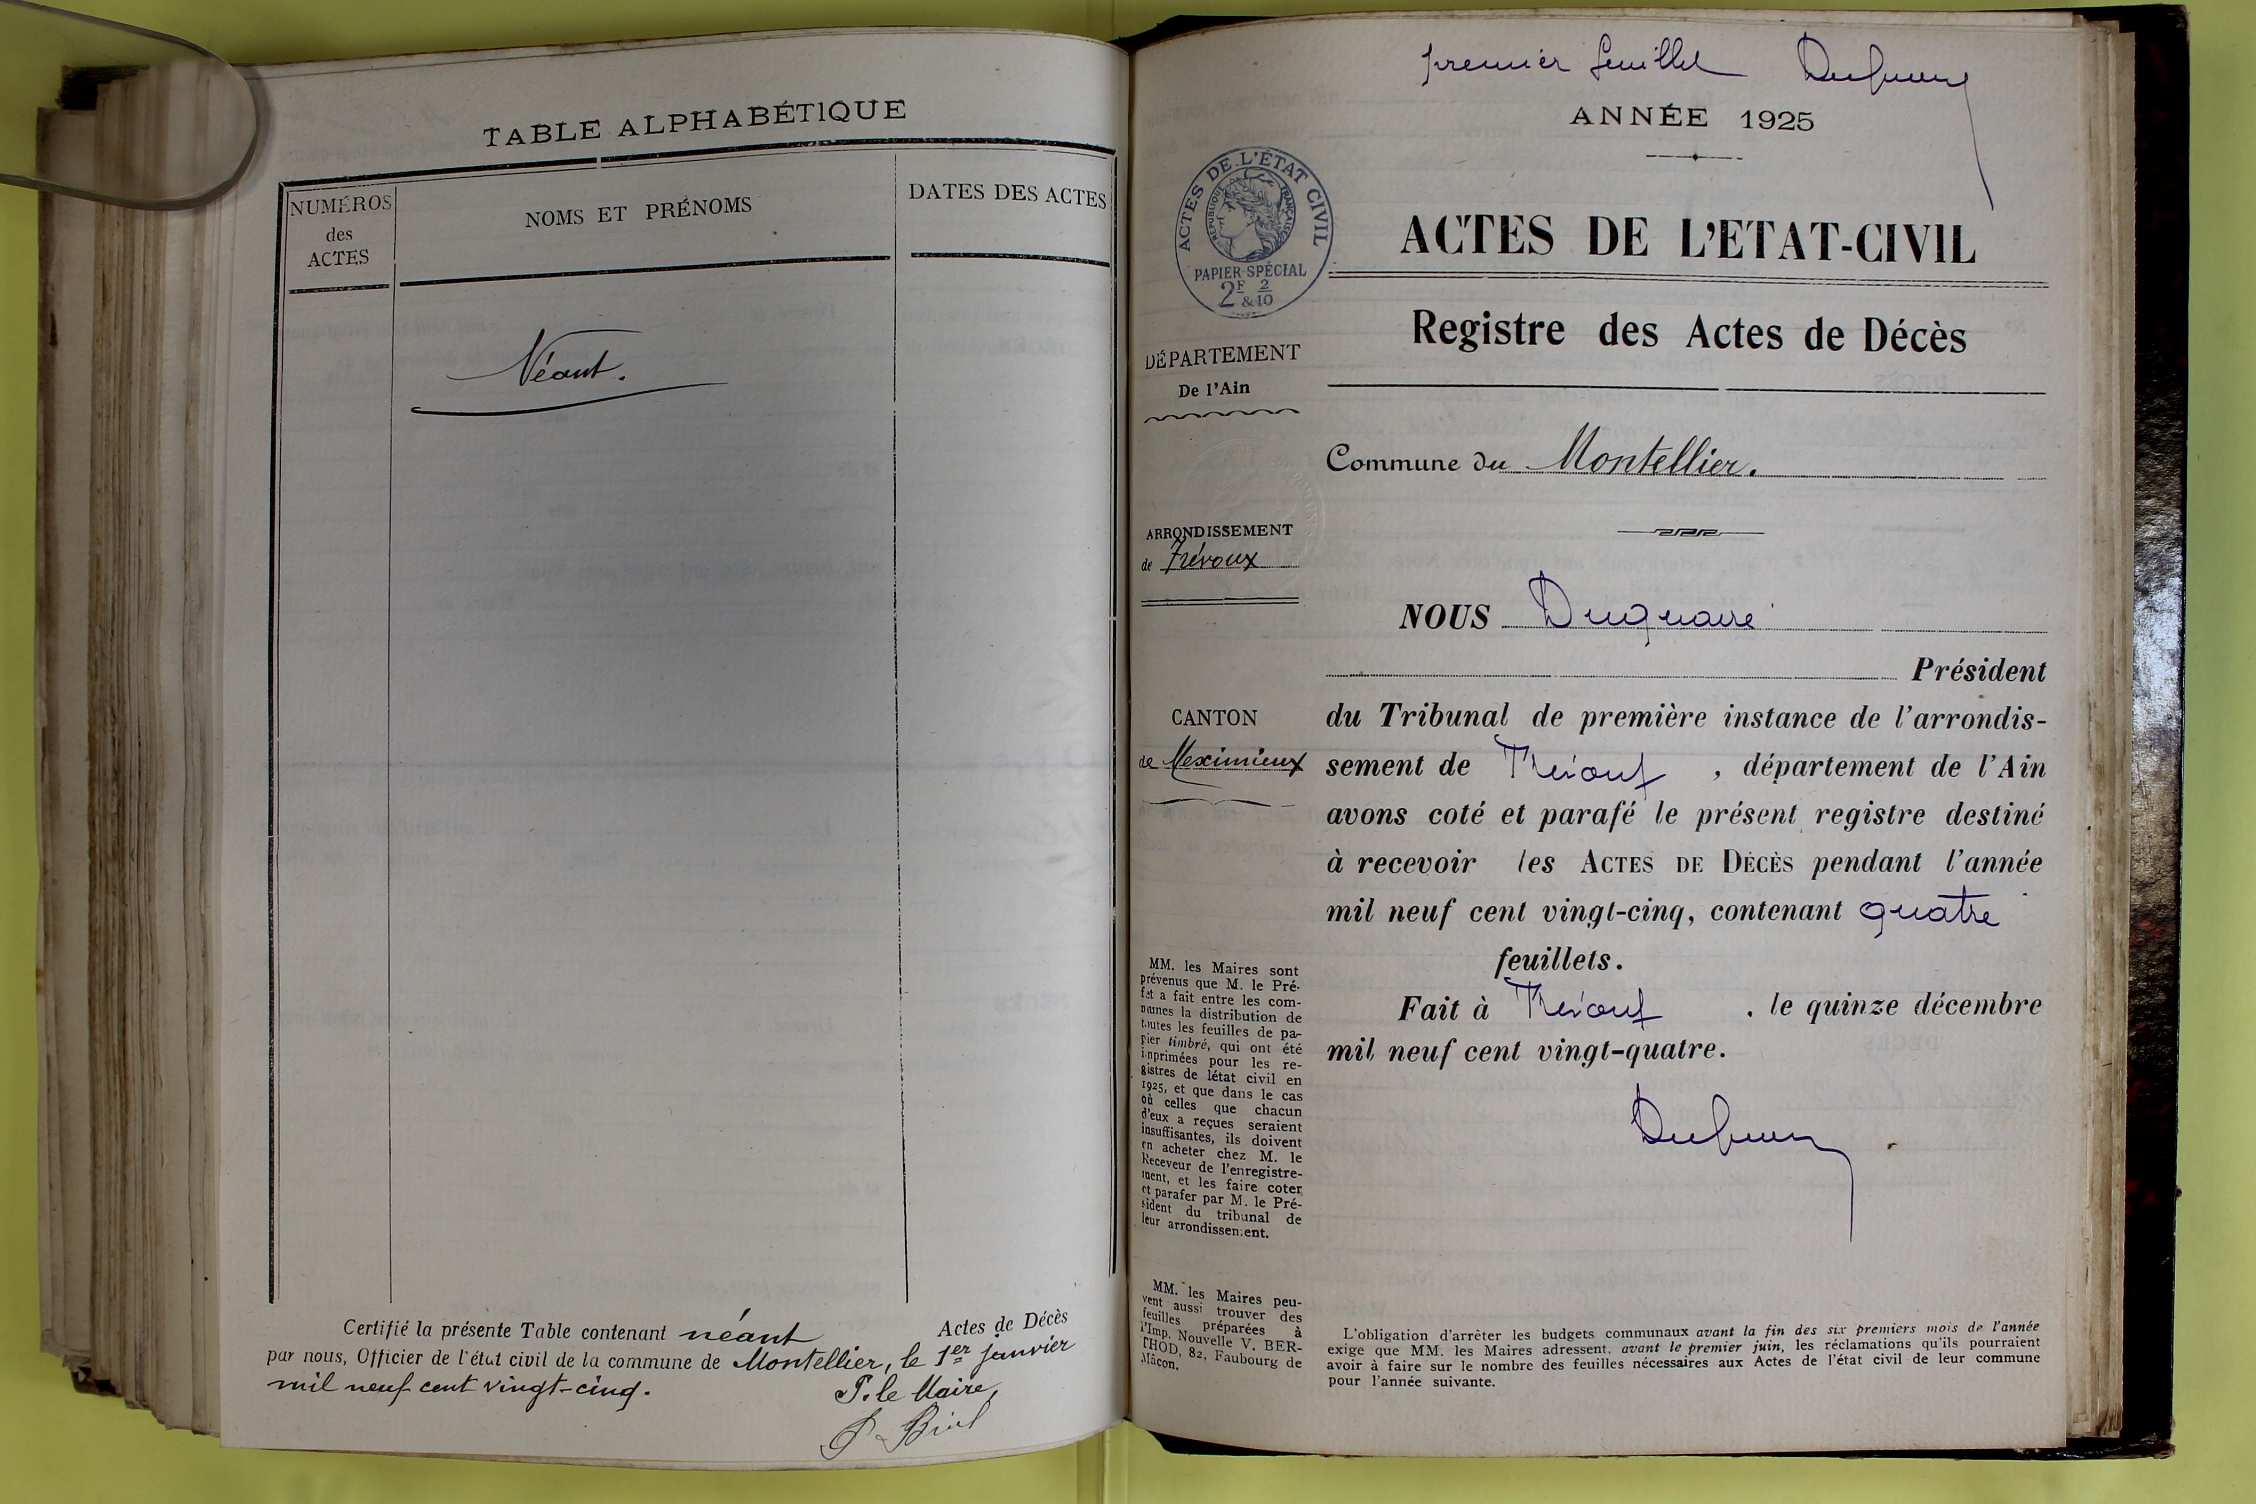 TABLE ALPHABÉTIQUE
NUMÉROS
des
ACTES
NOMS ET PRÉNOMS
DATES DES ACTES
Néant.
Certifié la présente Table contenant néant Actes de Décès
par nous, Officier de l'état civil de la commune de Montellier, le 1er janvier
mil neuf cent vingt-cinq.
P. le Maire,
premier feuillet
ANNÉE 1925
ACTES DE L'ÉTAT CIVIL
RÉPUBLIQUE FRANÇAISE
PAPIER SPÉCIAL
2F & 2/10
ACTES DE L'ETAT-CIVIL
Registre des Actes de Décès
DÉPARTEMENT
De l'Ain
Commune du Montellier.
ARRONDISSEMENT
de Trévoux
CANTON
de Meximieux
NOUS Duquaire
Président
du Tribunal de première instance de l'arrondis-
sement de Trévoux, département de l'Ain
avons coté et parafé le présent registre destiné
à recevoir les ACTES DE DÉCÈS pendant l'année
mil neuf cent vingt-cinq, contenant quatre
feuillets.
Fait à Trévoux, le quinze décembre
mil neuf cent vingt-quatre.
MM. les Maires sont
prévenus que M. le Pré-
fet a fait entre les com-
munes la distribution de
toutes les feuilles de pa-
pier timbré, qui ont été
imprimées pour les re-
gistres de létat civil en
1925, et que dans le cas
où celles que chacun
d'eux a reçues seraient
insuffisantes, ils doivent
en acheter chez M. le
Receveur de l'enregistre-
ment, et les faire coter
et parafer par M. le Pré-
sident du tribunal de
leur arrondissement.
MM. les Maires peu-
vent aussi trouver des
feuilles préparées à
l'Imp. Nouvelle V. BER-
THOD, 82, Faubourg de
Mâcon.
L'obligation d'arrêter les budgets communaux avant la fin des six premiers mois de l'année
exige que MM. les Maires adressent, avant le premier juin, les réclamations qu'ils pourraient
avoir à faire sur le nombre des feuilles nécessaires aux Actes de l'état civil de leur commune
pour l'année suivante.